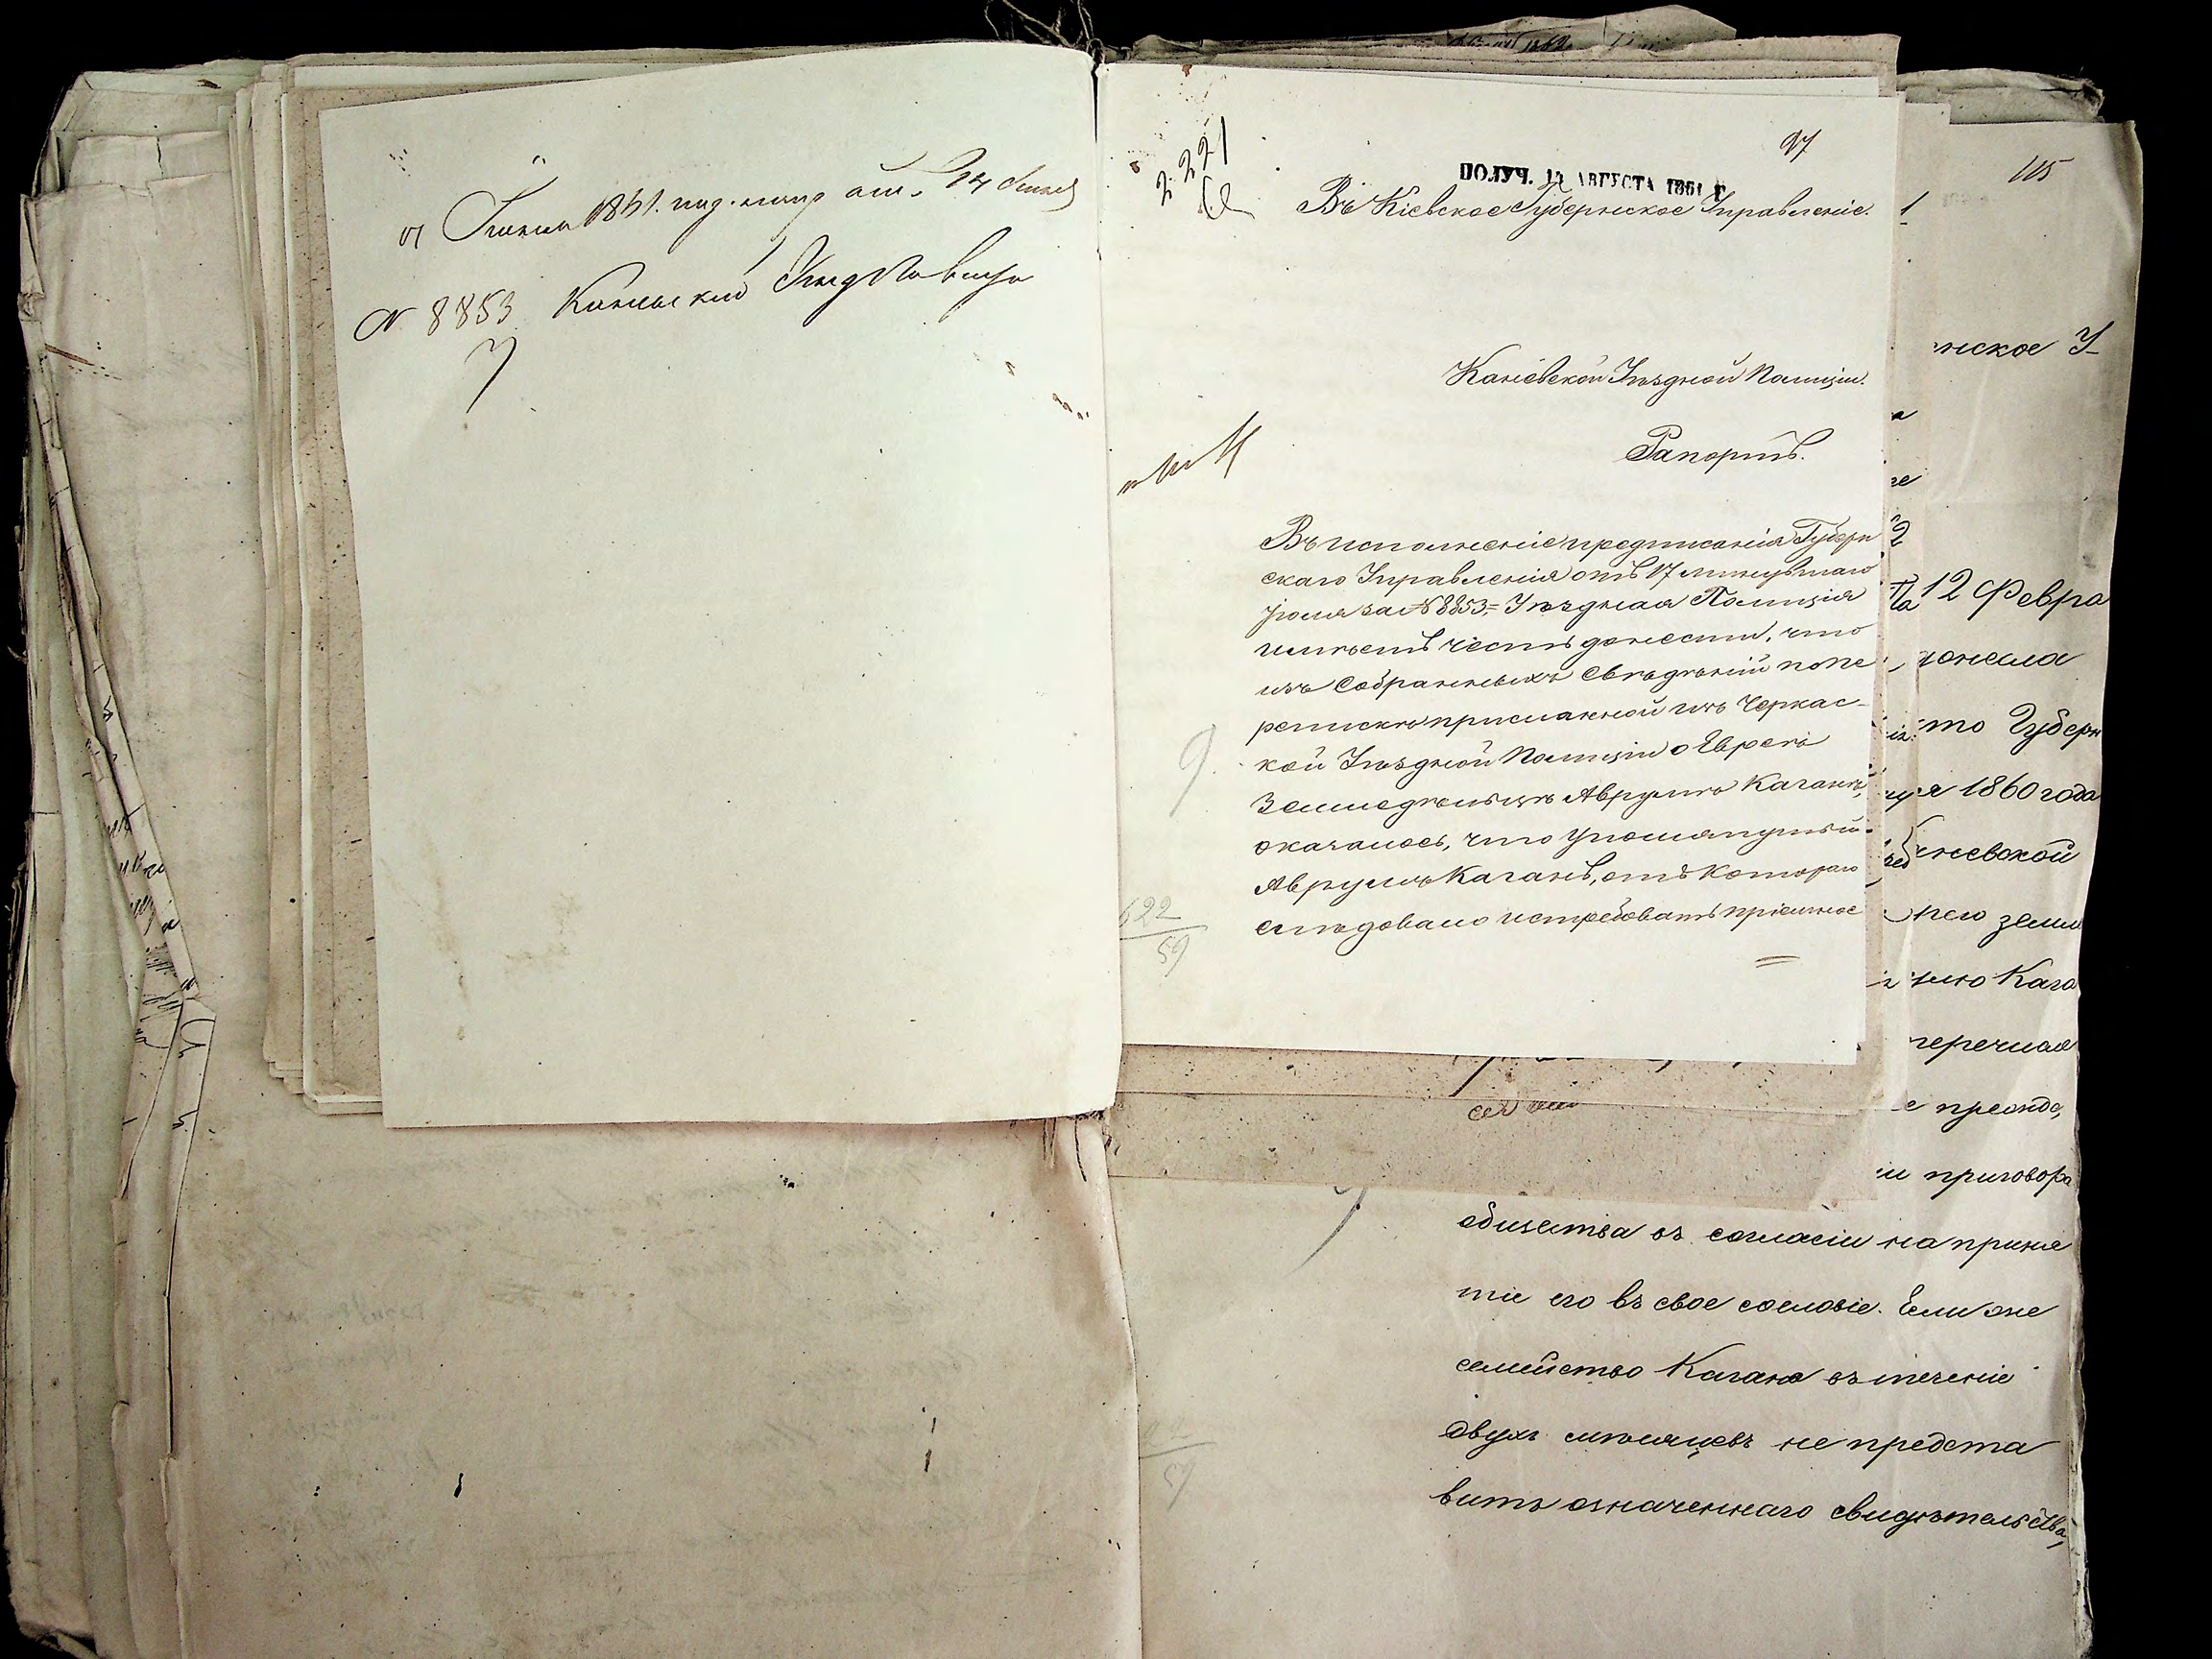 1861.
№ 8853
2221
97
ПОЛУЧ. АВГУСТА 1861 Г.
Въ Кіевское Губернское Управленіе.
Каневской Уѣздной Полиціи.
Рапортъ.
Въ исполненіе предписанія Губерн
скаго Управленія отъ 17 минувшаго
Іюля за № 8853 = Уѣздная Полиція
имѣетъ честь донести, что
изъ собранныхъ свѣдѣній по пе
репискѣ присланной изъ Черкас-
кой Уѣздной Полиціи о Евреѣ
Земледѣльцѣ Аврумѣ Каганѣ,
оказалось, что упомянутый
Аврумъ Каганъ, отъ котораго
слѣдовало истребовать пріемное
622
59
115
нское У
12 Февра
донесла
то Губерн
я 1860 года
невской
рею земл
Кага
перечис
приговора
общества въ согласіи на приня
тіе его въ свое сословіе. Если же
семейство Кагана въ теченіе
двухъ мѣсяцевъ не предста
витъ означеннаго свидѣтельства,